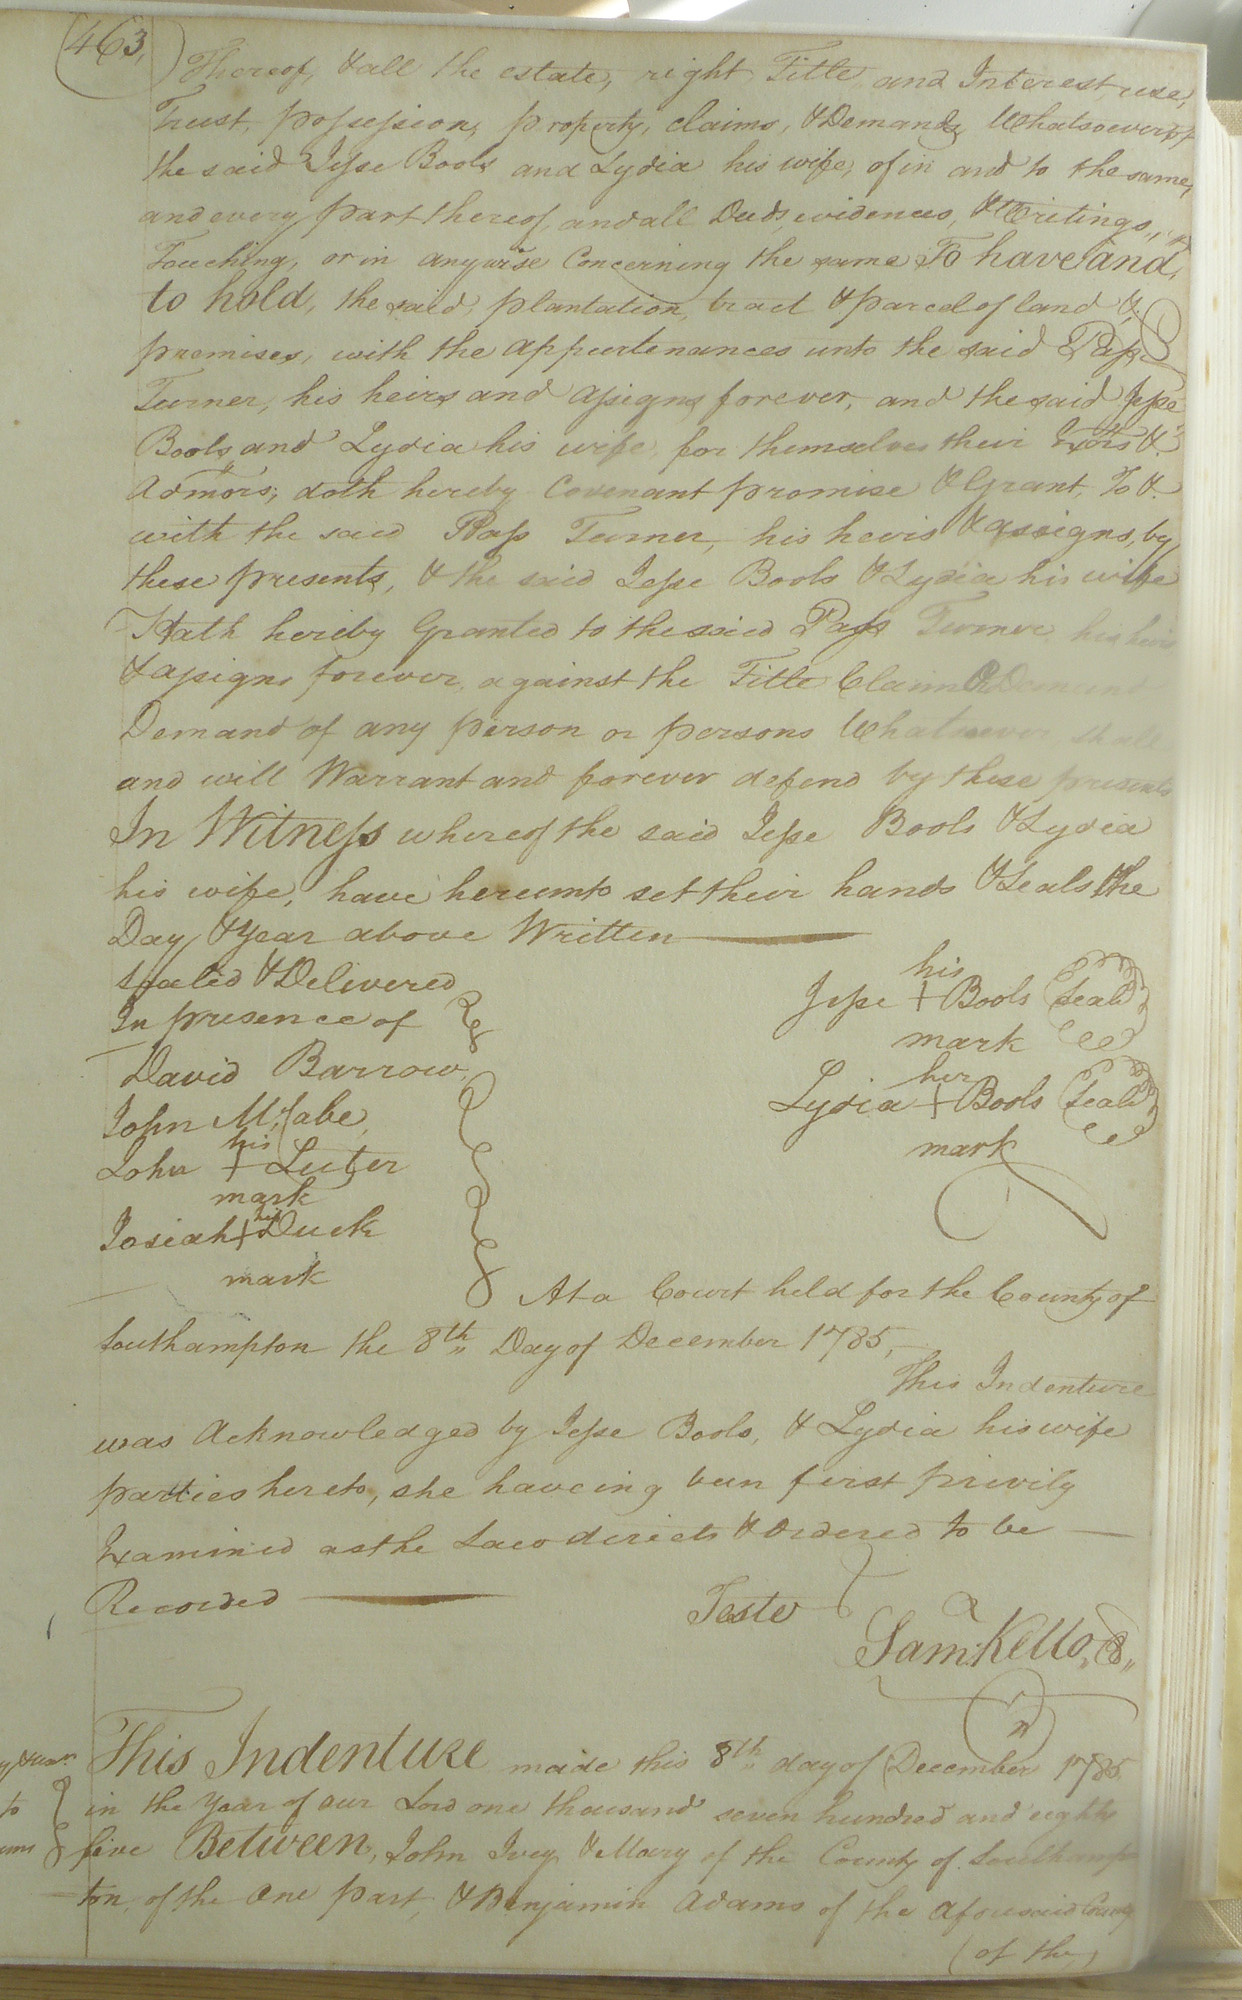 463,
Thereof, & all the estate, right Title and Interest, use,
Trust, possession, property, claims, & Demands Whatsoever of
the said Jesse Bools and Lydia his wife, of in and to the same,
and every part thereof, and all Deeds, evidences, & Writings,
Touching, or in anywise Concerning the same To have and,
to hold, the said, plantation, tract & parcel of land &
premises, with the appurtenances unto the said Pass
Turner, his heirs and assigns forever, and the said Jesse
Bools and Lydia his wife for themselves their Exors &
Admors, doth hereby Covenant promise & Grant, To &
with the said Pass Turner, his heirs & assigns, by
these presents, & the said Jesse Bools & Lydia his wife
Hath hereby Granted to the said Pass Turner his heirs
& assigns forever against the Title Claim & Demand
Demand of any person or persons Whatsoever shall
and will Warrant and forever defend by these presents
In Witness whereof the said Jesse Bools & Lydia
his wife, have hereunto set their hands & Seals the
Day & Year above Written
Sealed & Delivered
In presence of
David Barrow,
John McCabe,
his
John + Luter
mark
his
Josiah + Duck
mark
his
Jesse + Bools (Seal)
mark
her
Lydia + Bools (Seal)
mark
At a Court held for the County of
Southampton the 8th Day of December 1785,
This Indenture
was Acknowledged by Jesse Bools, & Lydia his wife
parties hereto, she haveing been first privily
Examined as the Law directs & Ordered to be
Recorded
Teste
Sam: Kello,
This Indenture made this 8th day of December 1785
in the Year of our Lord one thousand seven hundred and eighty
to
five Between, John Ivey & Mary of the County of Southamp
ton, of the One part, & Benjamin Adams of the Aforesaid County
(of the)